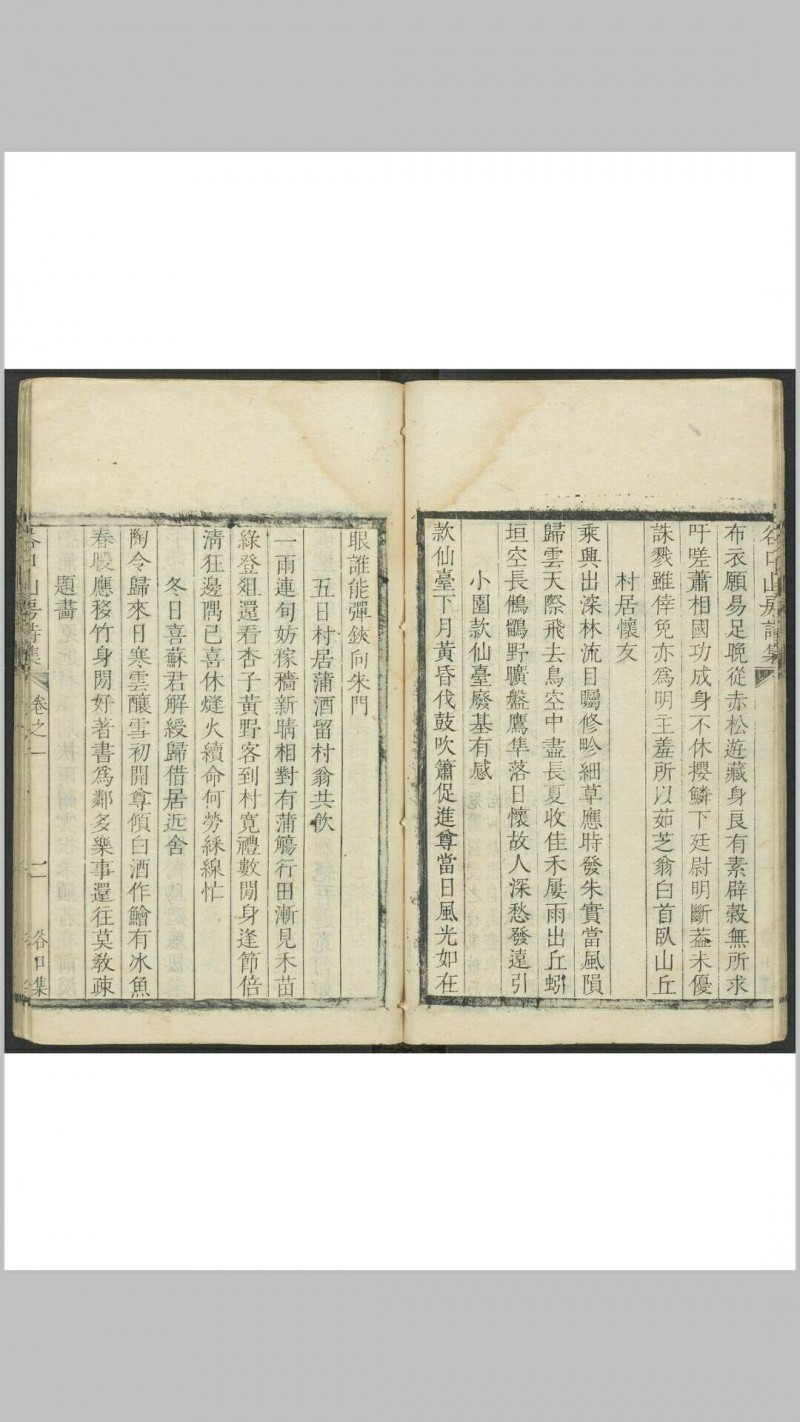 谷口山房詩集
布衣願易足晚從赤松遊藏身良有素辟穀無所求
吁嗟蕭相國功成身不休攖鱗下廷尉明斷葢未優
誅戮雖倖免亦爲明主羞所以茹芝翁白首臥山丘
村居懷友
乘興出深林流目矚修畛細草應時發朱實當風隕
歸雲天際飛去鳥空中盡長夏收佳禾屢雨出丘蚓
垣空長鵂鶹野曠盤鷹隼落日懷故人深愁發遠引
小圍款仙臺廢基有感
款仙臺下月黃昏伐鼓吹簫促進尊當日風光如在
眼誰能彈鋏向朱門
五日村居蒲酒留村翁共飲
一雨連旬妨稼穡新晴相對有蒲觴行田漸見禾苗
綠登俎還看杏子黃野客到村寬禮數閒身逢節倍
淸狂邊隅已喜休烽火續命何勞綵線忙
冬日喜蘇君解綬歸借居近舍
陶令歸來日寒雲釀雪初開尊傾白酒作鱠有冰魚
春暖應移竹身閒好著書爲鄰多樂事還往莫敎疎
題畵
谷口山房詩集
卷之一
二
谷口集